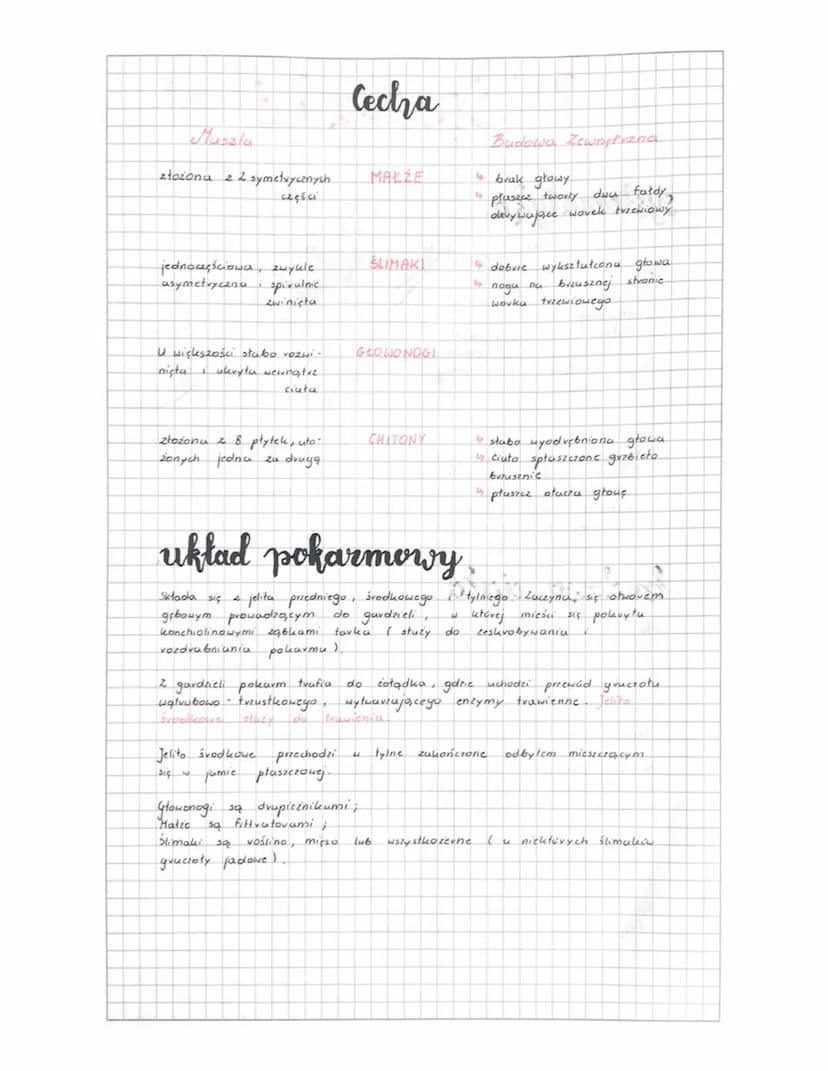 Cecha
Muszla
Budowa Zewnętrzna
złożona z 2 symetrycznych
części
MAŁŻE
↳ brak głowy
↳ płaszcz tworzy dwa fałdy,
okrywające worek trzewiowy
jednoczęściowa, zwykle
asymetryczna i spiralnie
zwinięta
ŚLIMAKI
↳ dobrze wykształcona głowa
↳ noga na brzusznej stronie
worka trzewiowego
U większości słabo rozwi-
nięta i ukryta wewnątrz
ciała
GŁOWONOGI
złożona z 8 płytek, uło-
żonych jedna za drugą
CHITONY
↳ słabo wyodrębniona głowa
↳ ciało spłaszczone grzbieto
brzusznie
↳ płaszcz otacza głowę
układ pokarmowy
Składa się z jelita przedniego, środkowego i tylniego. Zaczyna się otworem
gębowym prowadzącym do gardzieli, w której mieści się pokryta
konchiolinowymi ząbkami tarka ( służy do zeskrobywania i
rozdrabniania pokarmu ).
Z gardzieli pokarm trafia do żołądka, gdzie uchodzi przewód gruczołu
wątrobowo - trzustkowego, wytwarzającego enzymy trawienne. Jelito
środkowe służy do trawienia.
Jelito środkowe przechodzi w tylne zakończone odbytem mieszczącym
się w jamie płaszczowej.
Głowonogi są drapieżnikami;
Małże są filtratorami;
Ślimaki są roślino, mięso lub wszystkożerne ( u niektórych ślimaków
gruczoły jadowe ).